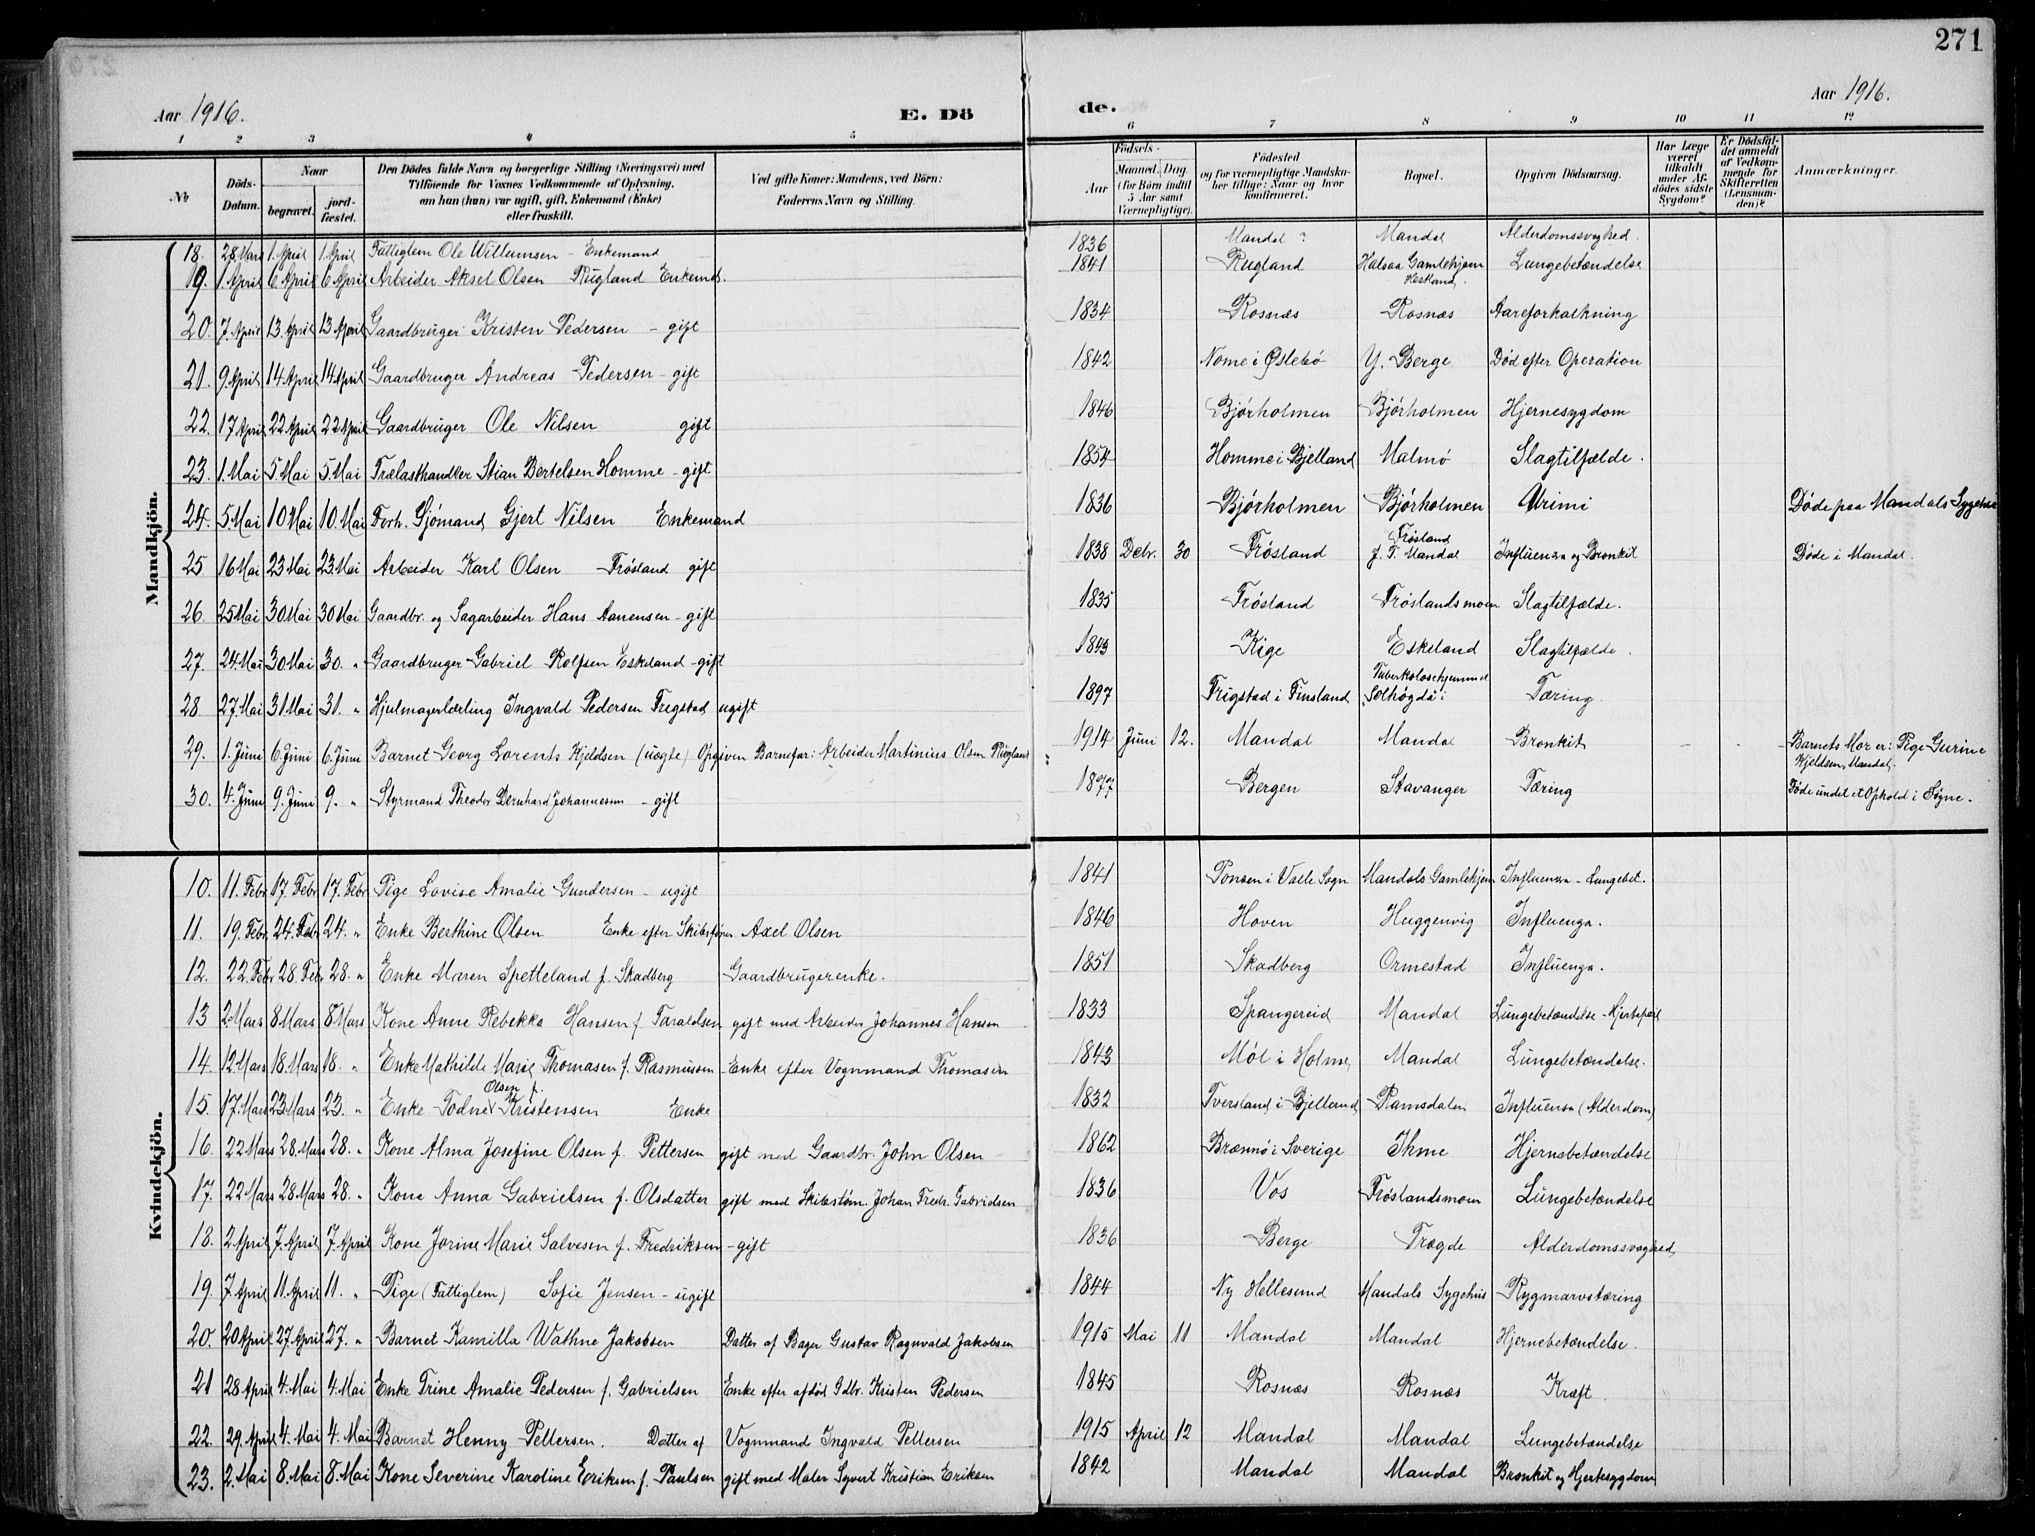 271
Aar 1916. E. Dö de. Aar 1916.
1 2 3 4 5 6 7 8 9 10 11 12
№ Döds-Datum. Naar begravet. jord-fæstet. Den Dödes fulde Navn og borgerlige Stilling (Næringsvei) med Tilföiende for Voxnes Vedkommende af Oplysning, om han (hun) var ugift, gift, Enkemand (Enke) eller fraskilt. Ved gifte Koner: Mandens, ved Börn: Faderens Navn og Stilling. Födsels- Aar Maaned. Dag. (for Börn indtil 5 Aar samt Værnepligtige). Födested og for værnepligtige Mandskaber tillige: Naar og hvor konfirmeret. Bopæl. Opgiven Dödsaarsag. Har Læge været tilkaldt under Afdödes sidste Sygdom? Er Dödsfaldet anmeldt af Vedkommende for Skifteretten (Lensmanden)? Anmærkninger.
Mandkjön.
18. 28 Mars 1 April 1 April Fattiglem Ole Willumsen - Enkemand 1836 Mandal ? Mandal Alderdomssvaghed.
19. 1 April 6 April 6 April Arbeider Aksel Olsen Rugland Enkemd. 1841 Rugland Halsaa Gamlehjem Lungebetændelse
20. 7. April 13. April 13 April Gaardbruger Kristen Pedersen - gift 1834 Rosnæs Rosnæs Aareforkalkning
21. 9 April 14 April 14 April Gaardbruger Andreas Pedersen - gift 1842 Nome i Øslebø Y. Berge Död efter Operation
22. 17 April 22 April 22 April Gaardbruger Ole Nilsen gift 1846 Bjørholmen Bjørholmen Hjernesygdom
23. 1. Mai 5 Mai 5 Mai Trælasthandler Stian Bertelsen Homme - gift 1854 Homme i Bjelland Malmø Slagtilfælde.
24. 5. Mai 10 Mai 10. Mai Forh. Sjømand Gjert Nilsen Enkemand 1836 Bjørholmen Bjørholmen Urimi Døde paa Mandals Sygehus
25 16 Mai 23 Mai 23. Mai Arbeider Karl Olsen Frøsland gift 1838 Debr. 30 Frøsland Frøsland f. T. Mandal Influensa og Bronkit Døde i Mandal.
26. 25 Mai 30 Mai 30 Mai Gaardbr. og Sagarbeider Hans Aanensen - gift 1835 Frøsland Frøslandsmoen Slagtilfælde.
27. 24. Mai 30 Mai 30. " Gaardbruger Gabriel Rolfsen Eskeland - gift 1843 Kige Eskeland Slagtilfælde.
28 27. Mai 31 Mai 31. " Hjulmagerlærling Ingvald Pedersen Frigstad ugift 1897 Frigstad i Finsland Tuberkolosehjemmet "Solhøgda" i Tæring
29. 1. Juni 6 Juni 6 Juni Barnet Georg Lorents Kjeldsen (uægte) Opgiven Barnefar: Arbeider Martinius Olsen Røgland 1914 Juni 12. Mandal Mandal Bronkit - - Barnets Mor er: Pige Gurine Kjeldsen, Mandal.
30. 4. Juni 9. Juni 9. " Styrmand Theodor Bernhard Johannessen - gift 1877 Bergen Stavanger Tæring Døde under et Ophold i Søgne.
Kvindekjön.
10. 11. Febr 17. Febr 17. Febr Pige Lovise Amalie Gundersen - ugift 1841 Ponsen i Valle Sogn Mandals Gamlehjem Influensa - Lungebet.
11. 19. Febr. 24. Febr 24. " Enke Berthine Olsen Enke efter Skibsfører Axel Olsen 1846 Hoven Huggenvig Influenza.
12. 22. Febr 28 Febr 28. " Enke Maren Spetteland f. Skadberg Gaardbrugerenke. 1851 Skadberg Ormestad Influenza.
13 2. Mars 8 Mars 8 Mars Kone Anne Rebekka Hansen f. Taraldsen gift med Arbeider Johannes Hansen 1833 Spangereid Mandal Lungebetændelse - Hjertefeil
14. 12 Mars 18. Mars 18. " Enke Mathilde Marie Thomasen f. Rasmussen - Enke efter Vognmand Thomasen 1843 Møl i Holme Mandal Lungebetændelse.
15. 17. Mars 23. Mars 23. " Enke Todne Olsen f. Kristensen Enke 1832 Tversland i Bjelland Ramsdalen Influensa (Alderdom)
16. 22 Mars 28. Mars 28. " Kone Alma Josefine Olsen f. Pettersen gift med Gaardbr. John Olsen 1862 Brænnø i Sverige Ihme Hjernebetændelse
17. 22 Mars 28 Mars 28. " Kone Anna Gabrielsen f. Olsdatter gift med Skibstøm. Johan Fredr. Gabrielsen 1836 Vos Frøslandsmoen Lungebetændelse
18. 2 April 7. April 7. April Kone Jorine Marie Salvesen f. Fredriksen - gift 1836 Berge Tregde Alderdomssvaghed
19. 7 April 11. April 11. " Pige (Fattiglem) Sofie Jensen - ugift 1844 Ny Hellesund Mandals Sygehus Rygmarvstæring
20. 20 April 27. April 27. " Barnet Kamilla Wathne Jakobsen Datter af Bager Gustav Ragnvald Jakobsen 1915 Mai 11 Mandal Mandal Hjernebetændelse.
21 28 April 4. Mai 4. Mai Enke Trine Amalie Pedersen f. Gabrielsen Enke efter afdød Gdbr. Kristen Pedersen 1845 Rosnæs Rosnæs Kræft
22. 29. April 4. Mai 4. Mai Barnet Henny Pettersen. Datter af Vognmand Ingvald Pettersen 1915 April 12 Mandal Mandal Lungebetændelse
23. 2. Mai 8. Mai 8. Mai Kone Severine Karoline Eriksen f. Paulsen gift med Maler Syvert Kristian Eriksen 1842 Mandal Mandal Bronkit og Hjertesygdom